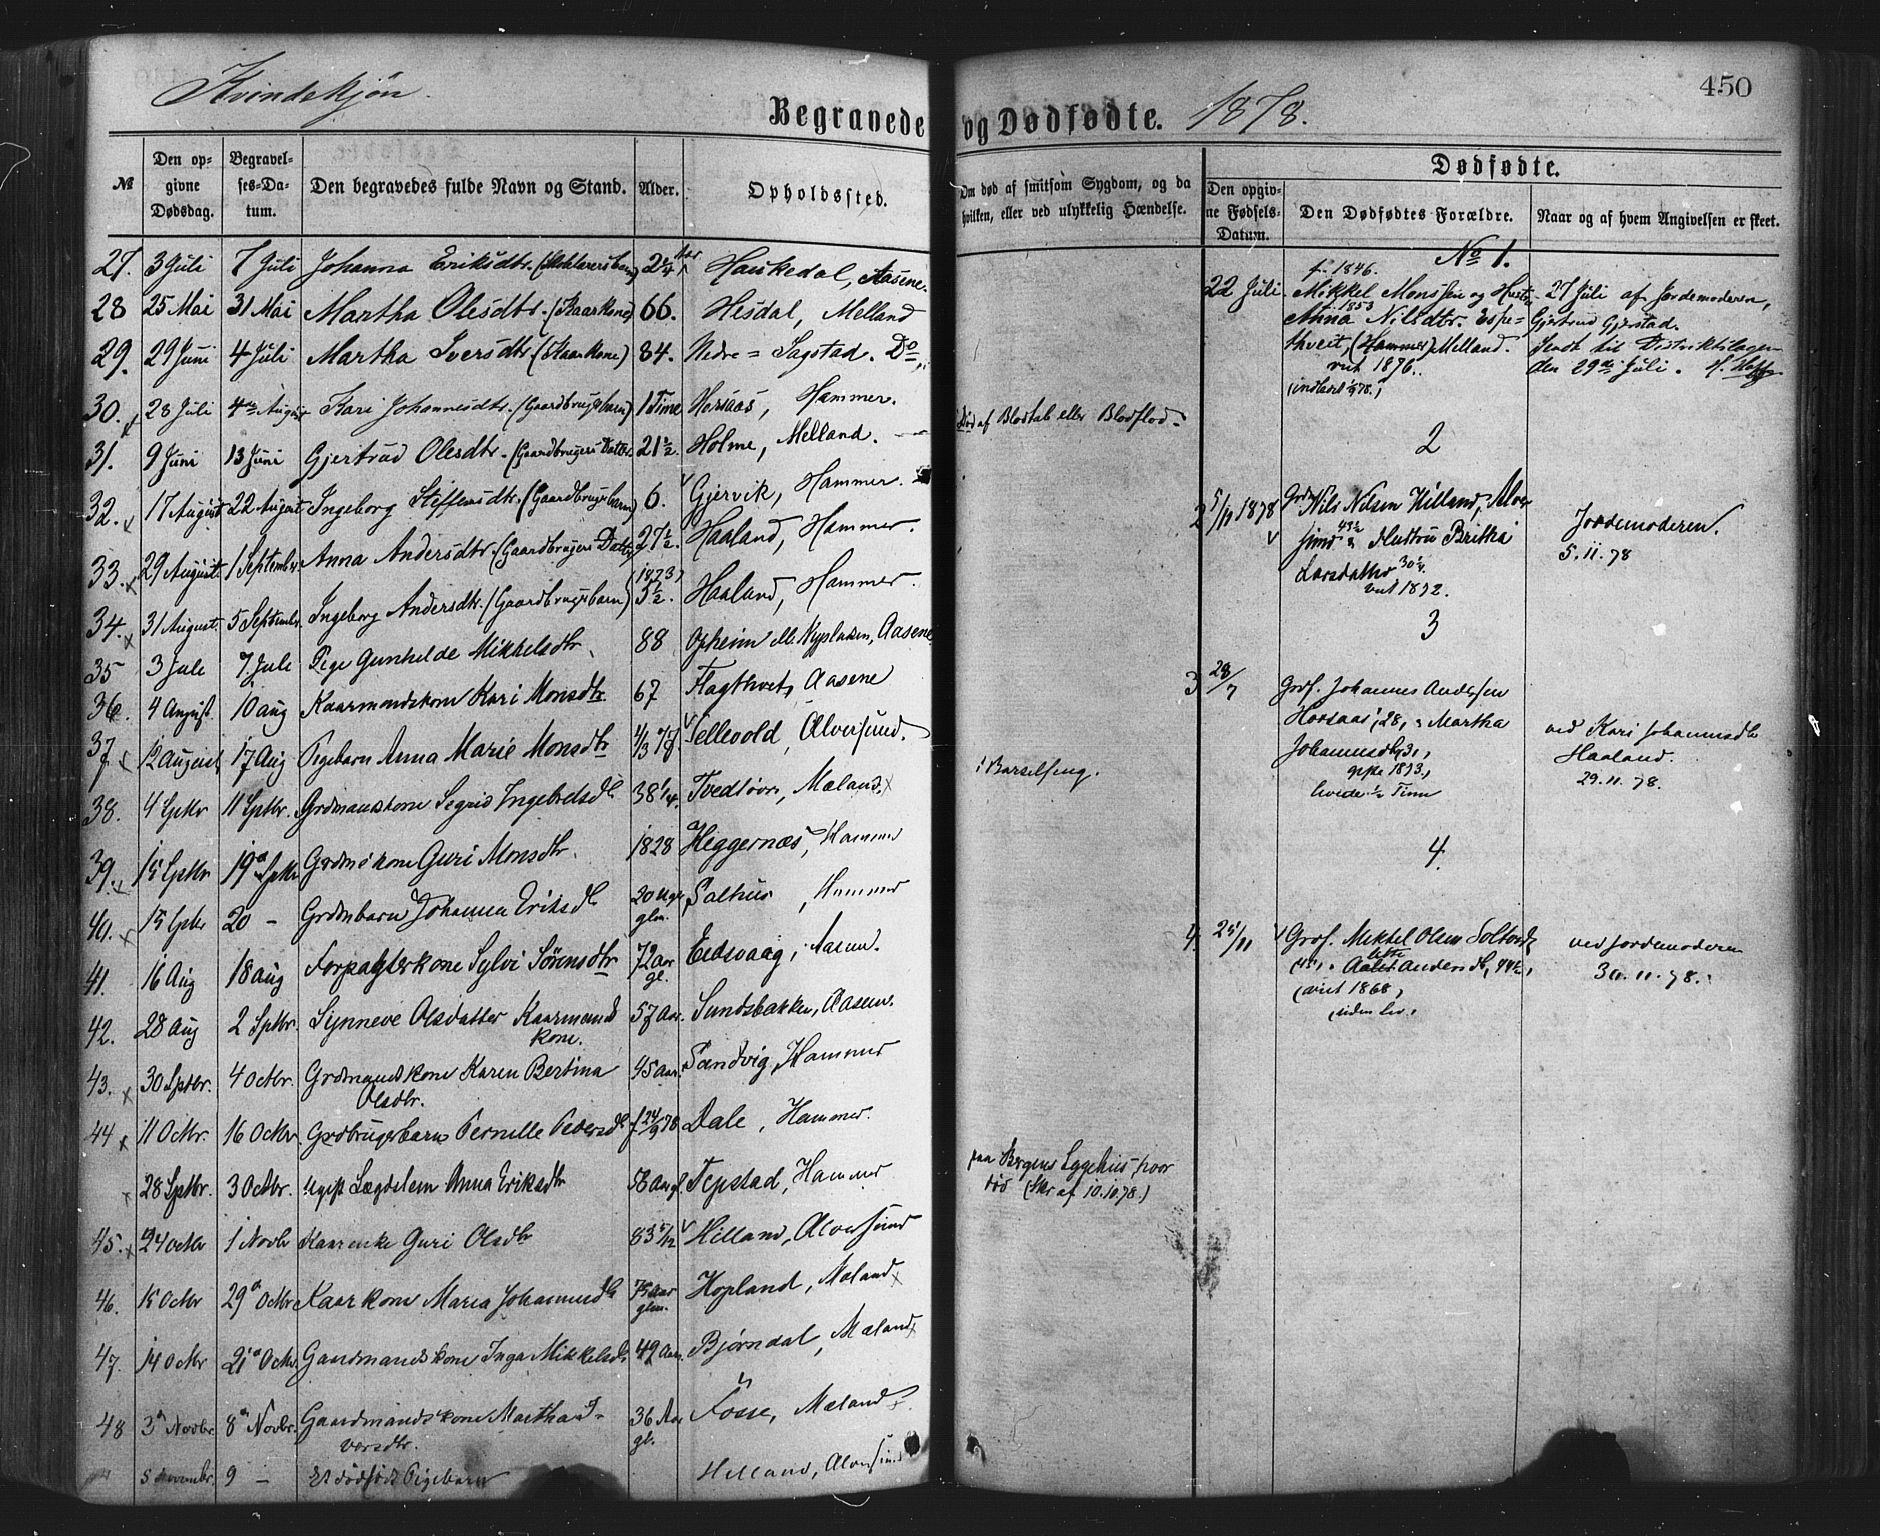 Kvindekjøn.
Begravede og Dødfødte. 1878.
450
№
Den opgivne Dødsdag.
Begravelses-Datum.
Den begravedes fulde Navn og Stand.
Alder.
Opholdssted.
Om død af smitsom Sygdom, og da hvilken, eller ved ulykkelig Hændelse.
Dødfødte.
Den opgivne Fødsels-Datum.
Den Dødfødtes Forældre.
Naar og af hvem Angivelsen er skeet.
27. 3 Juli 7 Juli Johanna Eriksdtr. Aasene.
28 25 Mai 31 Mai Martha Olesdtr. (Kaarkone) 66. Hisdal, Melland
29. 29 Juni 4 Juli Martha Iversdtr (Kaarkone) 84. Nedre = Sagstad. Do
30. 28 Juli 4de August Kari Johannesdtr. (Gaardbrugsbarn) 1 Time Hammer. Død af Blodtab eller Blodflod.
31. 9 Juni 13 Juni Gjertrud Olesdtr. (Gaardbrugers Datter 21½. Holme, Melland.
32. 17 August 22 August Ingeborg Steffensdtr. (Gaardbrugsbarn) 6. Gjervik, Hammer.
33. 29 August 1 September Anna Andersdtr. (Gaardbrugers Datter 27½. Haaland, Hammer.
34. 31 August. 5 September. Ingeborg Andersdtr. (Gaardbrugsbarn) (1873) 5½. Haaland, Hammer.
35 3 Jule 7. Jule Pige Gunhilde Mikkelsdtr. 88 Opheim Aasene
36. 4 August. 10 aug Kaarmandskone Kari Monsdtr 67 Aasene
37. 12 August 17 Aug Pigebarn Anna Marie Monsdtr Tellevold, Alversund.
38. 4 Sptbr 11 Sptbr. Grdmandskone Segrid Ingebretsdtr 38¼. Mæland. i Barselseng.
39. 15 Sptbr 19 Sptbr Grdmskone Guri Monsdtr. 1828 Higgernæs, Hammer
40. 15 Sptbr 20 — Grdmbarn Johanna Eriksdtr 20 Salhus, Hammer
41. 16 Aug 18 aug Forpagterkone Sylvi Sørensdtr 72 Aar gl. Eidsvaag, Aasene.
42. 28 Aug 2 Sptbr. Synneve Olsdatter Kaarmandskone. 57 Aar. Sundsbakken, Aasene.
43. 30 Sptbr. 4 Octbr. Grdmandskone Karen Bertina Olsdtr. 45 aar. Sandvig, Hammer
44 11 Octbr. 16 Octbr Grdbrugerbarn Pernille Pedersdtr f 24/9 78 Dale, Hammer.
28 Sptbr. 3 Octbr. Ugift Lægdslem Anna Eriksdtr 58 Tepstad, Hammer paa Bergens Sygehus hvor død (Skr af 10.10.78.)
45. 24 Octbr 1 Novbr Guri Olsdtr 83 5/12 Hilland, Alversund
46. 15 Octbr 29 Octbr Kaarkone Maria Johannesdtr 75 aar glm. Hopland, Mæland
47. 14 Octbr 21 Octbr. Gaardmandskone Inga Mikkelsdtr 49 Aar. Bjørndal, Mæland
48 3 Novbr. 8 Novbr. Gaardmandskone Martha Iversdtr. 36 Aar gl. Fosse, Mæland
5 Novembr. 9 — Et dødfødt Pigebarn Hilland, Alversund
No 1.
22 Juli f. 1846. Mikkel Monssen og Hustru Anna f. 1853 Nilsdtr. Espethveit, (Hammer) Melland. viet 1876.
27 Juli af Jordemoderen, Gjertrud Gjerstad. Sendt til Distriktslægen den 29de Juli.
2
2 5/11 1878 Nils Nilsen Hilland, Alversund 43½ & Hustru Britha Larsdatter 30¼. viet 1872.
Jordemoderen. 5.11.78
3
3 28/7 Grdf. Johannes Andersen Horsaas, 28, & Martha Johannesdtr, 31, gifte 1873, levede ½ Time
ved Kari Johannesdtr Haaland. 29.11.78.
4.
4. 25/11 Grdf. Mikkel Olsen Andersdtr, 44½, (viet 1868,
ved Jordemoderen 30.11.78.